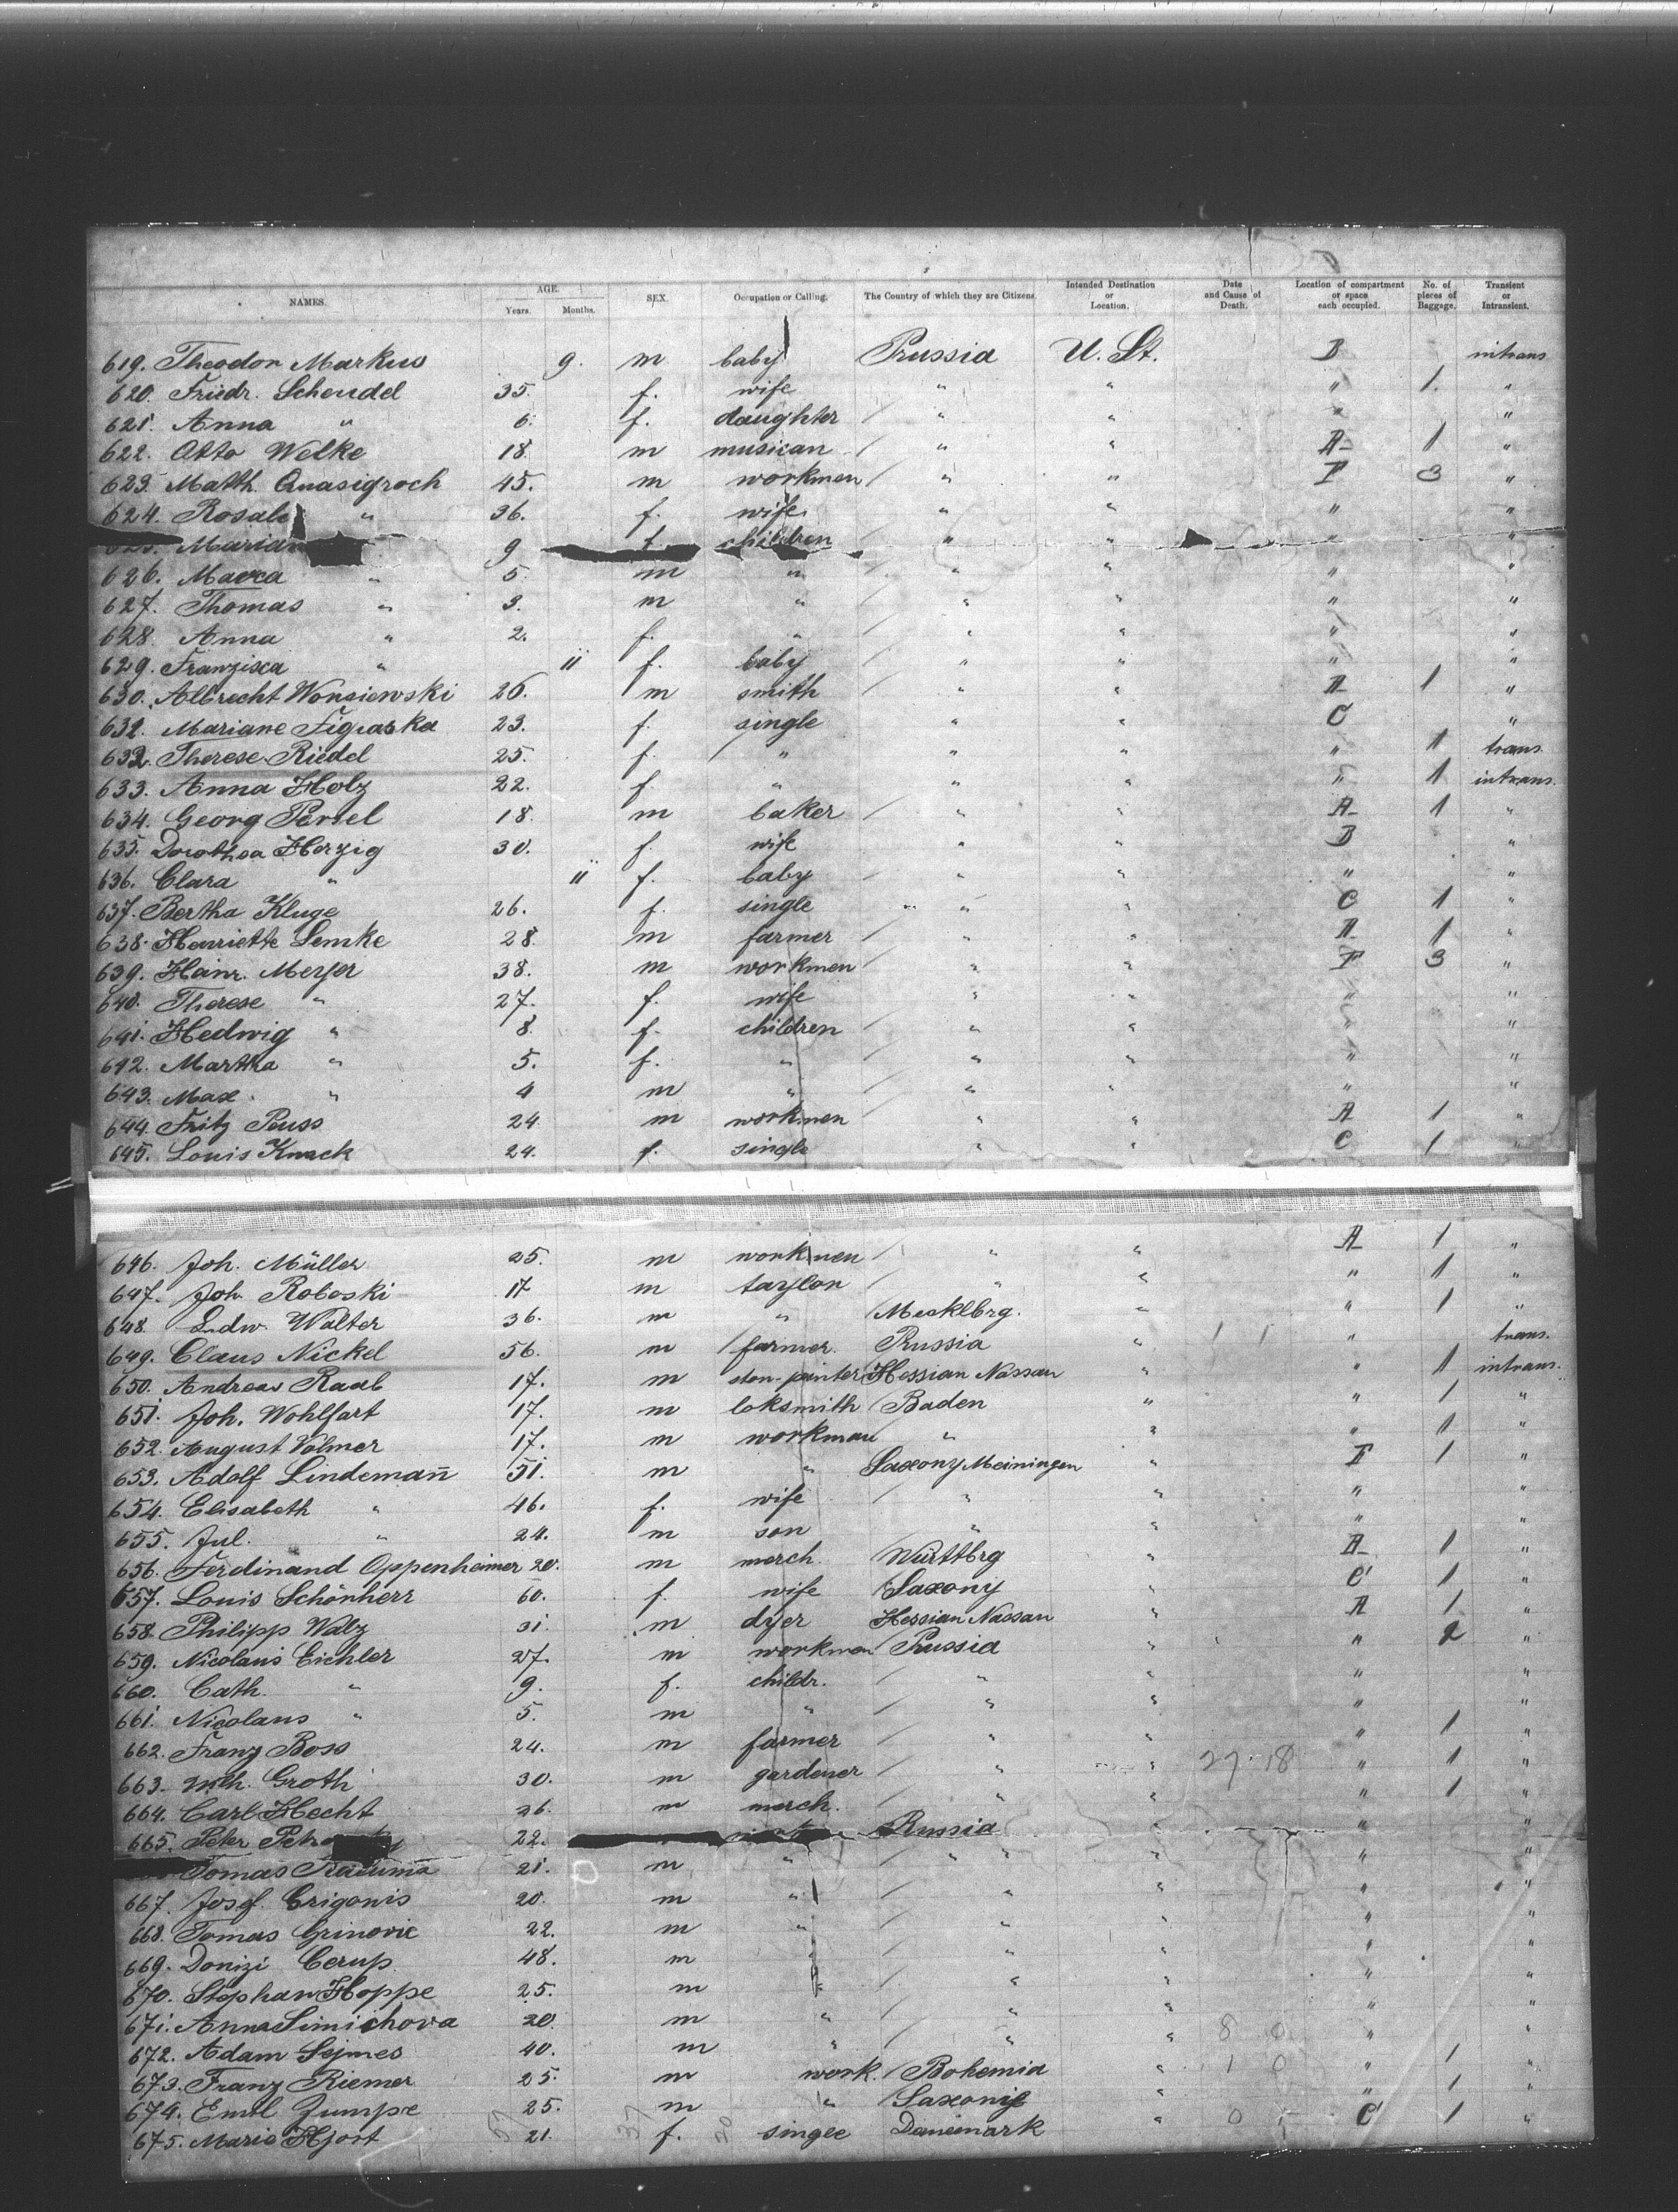 NAMES. AGE. Years. Months. SEX. Occupation or Calling. The Country of which they are Citizens. Intended Destination or Location. Date and Cause of Death. Location of compartment or space each occupied. No. of pieces of Baggage. Transient or Intransient.
619. Theodor Markus 9. m baby Prussia U. St. B intrans
620. Friedr. Schendel 35. f. wife " " " 1. "
621. Anna " 6. f. daughter " " " "
622. Otto Welke 18. m musican " " A 1 "
623. Matth. Quasigroch 45. m workmen " " F 3 "
624. Rosal " 36. f. wife " " " "
Maria 9 f. children " " " "
626. " 5. m " " " " "
627. Thomas " 3. m " " " " "
628. Anna " 2. f. " " " " "
629. Franzisca " 11 f. baby " " " "
630. Albrecht Wonsiewski 26. m smith " " A 1 "
631. Mariane 23. f. single " " C "
632. Therese Riedel 25. f. " " " " 1 trans.
633. Anna Holz 22. f. " " " " 1 intrans.
634. Georg 18. m baker " " A 1 "
635. Dorothea Herzig 30. f. wife " " B "
636. Clara " 11 f. baby " " " "
637. Bertha Kluge 26. f. single " " C 1 "
638. Henriette Lemke 28. m farmer " " A 1 "
639. Heinr. Meyer 38. m workmen " " F 3 "
640. Therese " 27. f. wife " " " "
641. Hedwig " 8. f. children " " " "
642. Martha " 5. f. " " " " "
643. Max " 4 m " " " " "
644. Fritz Peuss 24 m workmen " " A 1 "
645. Louis Knack 24. f. single " " C 1 "
646. Joh. Müller 25. m workmen " " A 1 "
647. Joh. Roboski 17 m taylor " " " 1 "
648. Ludw. Walter 36. m " Mecklbrg. " " 1 "
649. Claus Nickel 56. m farmer Prussia " " trans.
650. Andreas Raab 17. m Hessian Nassau " " 1 intrans.
651. Joh. Wohlfart 17. m loksmith Baden " " 1 "
652. August Volmer 17. m workman " " " 1 "
653. Adolf Lindemañ 51. m " Saxony Meiningen " F 1 "
654. Elisabeth " 46. f. wife " " " "
655. Jul. " 24. m son " " " "
656. Ferdinand Oppenheimer 20. m merch. Württbrg " A 1 "
657. Louis Schönherr 60. f. wife Saxony " C 1 "
658. Philipp Walz 31. m dyer Hessian Nassau " A 1 "
659. Nicolaus Eichler 27. m workman Prussia " " 2 "
660. Cath. " 9. f. childr. " " " "
661. Nicolaus " 5. m " " " " "
662. Franz Boss 24. m farmer " " " 1 "
663. Groth 30. m gardener " " 27 18 " 1 "
664. Carl Hecht 26. m merch. " " " 1 "
665. Peter 22. Russia " " "
Tomas 21. m " " " " "
667. Josef. Grigonis 20. m " " " " "
668. Tomas Grinovic 22. m " " " " "
669. Donizi Cerup 48. m " " " " "
670. Stephan Hoppe 25. m " " " " "
671. Anna Simichova 20. m " " " " "
672. Adam Sejmes 40. m " " " 8 0 " "
673. Franz Riemer 25. m work. Bohemia " 1 0 " 1 "
674. Emil Zumpe 25. m " Saxonie " " 1 "
675. Marie Hjort 21. f. singee Danemark " C 1 "